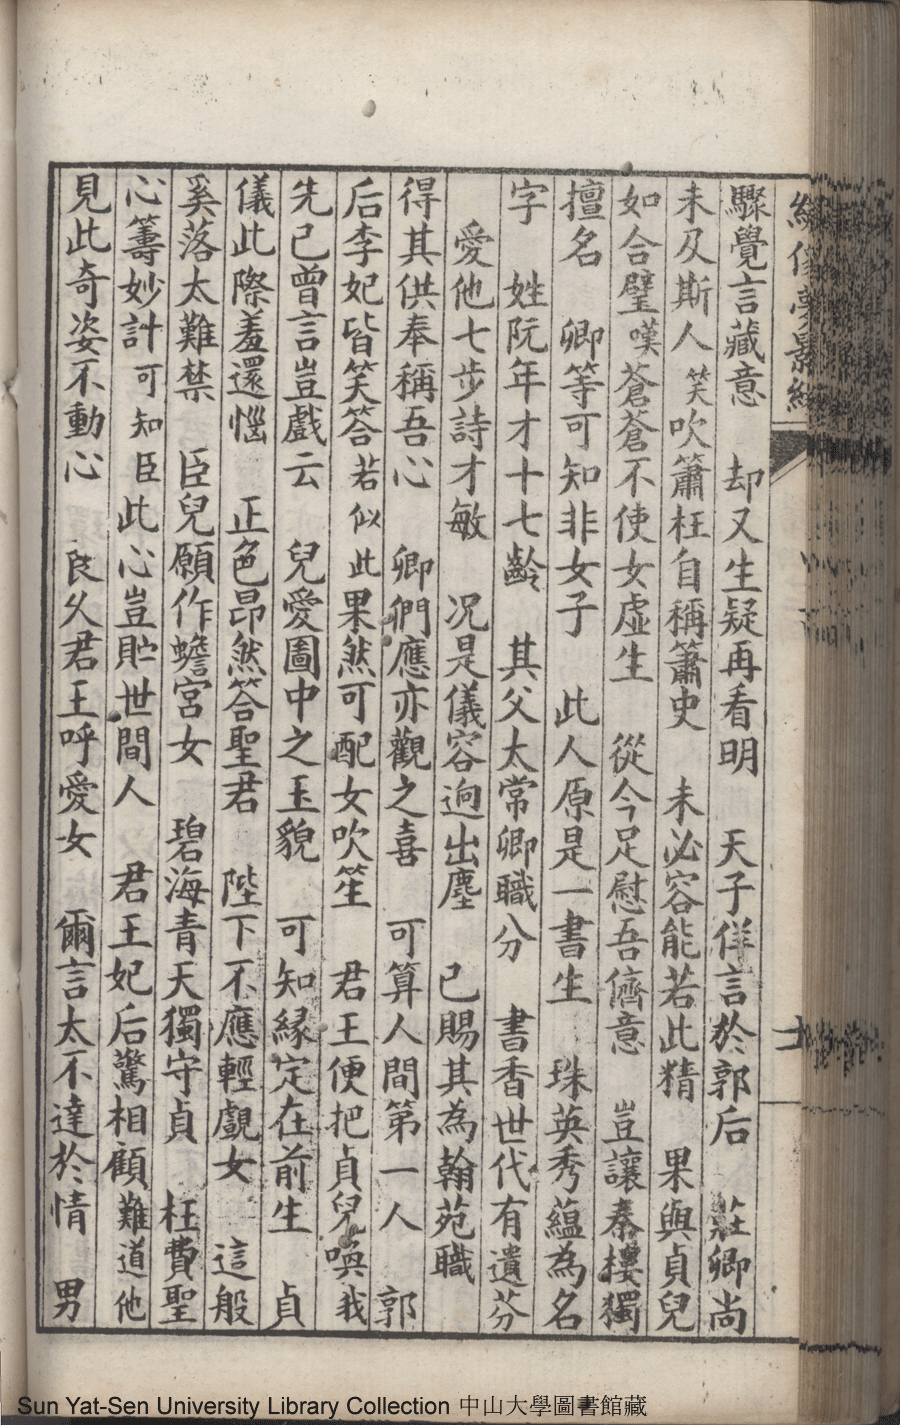 繡像夢影緣
十一
驟覺言藏意　却又生疑再看明　天子佯言於郭后　莊卿尚
未及斯人笑吹簫枉自稱簫史　未必容能若此精　果與貞兒
如合璧嘆蒼蒼不使女虛生　從今足慰吾儕意　豈讓秦樓獨
擅名　卿等可知非女子　此人原是一書生　珠英秀蘊為名
字　姓阮年才十七齡　其父太常卿職分　書香世代有遺芬
愛他七步詩才敏　况是儀容迥出塵　已賜其為翰苑職
得其供奉稱吾心　卿們應亦觀之喜　可算人間第一人　郭
后李妃皆笑答若似此果然可配女吹笙　君王便把貞兒喚我
先已曾言豈戲云　兒愛圖中之玉貌　可知緣定在前生　貞
儀此際羞還惱　正色昂然答聖君　陛下不應輕覷女　這般
奚落太難禁　臣兒願作蟾宮女　碧海青天獨守貞　枉費聖
心籌妙計可知臣此心豈貯世間人　君王妃后驚相顧難道他
見此奇姿不動心　良久君王呼愛女　爾言太不達於情　男
Sun Yat-Sen University Library Collection 中山大學圖書館藏